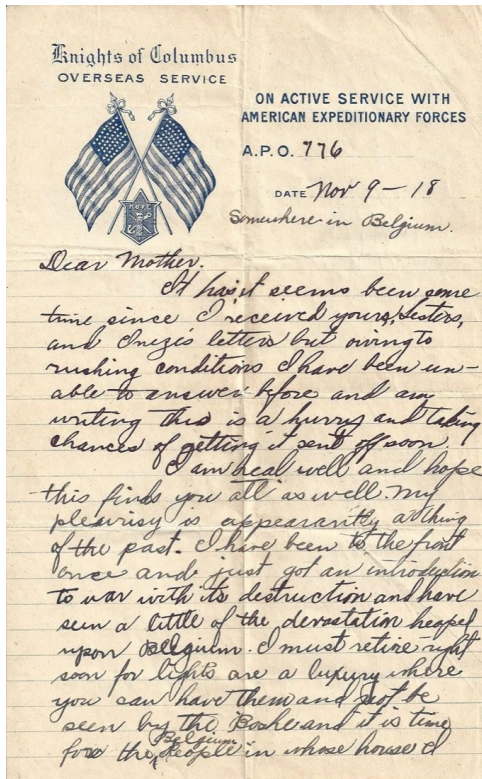 Knights of Columbus
OVERSEAS SERVICE
ON ACTIVE SERVICE WITH
AMERICAN EXPEDITIONARY FORCES
A.P.O. 776
DATE Nov 9-18
Somewhere in Belgium.
K OF C
Dear Mother.
It has it seems been some
time since I received yours, Sisters,
and Inezis letters but owing to
rushing conditions I have been un-
able to answer before and am
writing this is a hurry and taking
chances of getting it sent off soon.
I am real well and hope
this finds you all as well. My
pleurisy is appearantly a thing
of the past. I have been to the front
once and just got an introduction
to war with its destruction and have
seen a little of the devastation heaped
upon Belgium. I must retire right
soon for lights are a luxury where
you can have them and not be
seen by the Boshe and it is time
for the Belgium People in whose house I